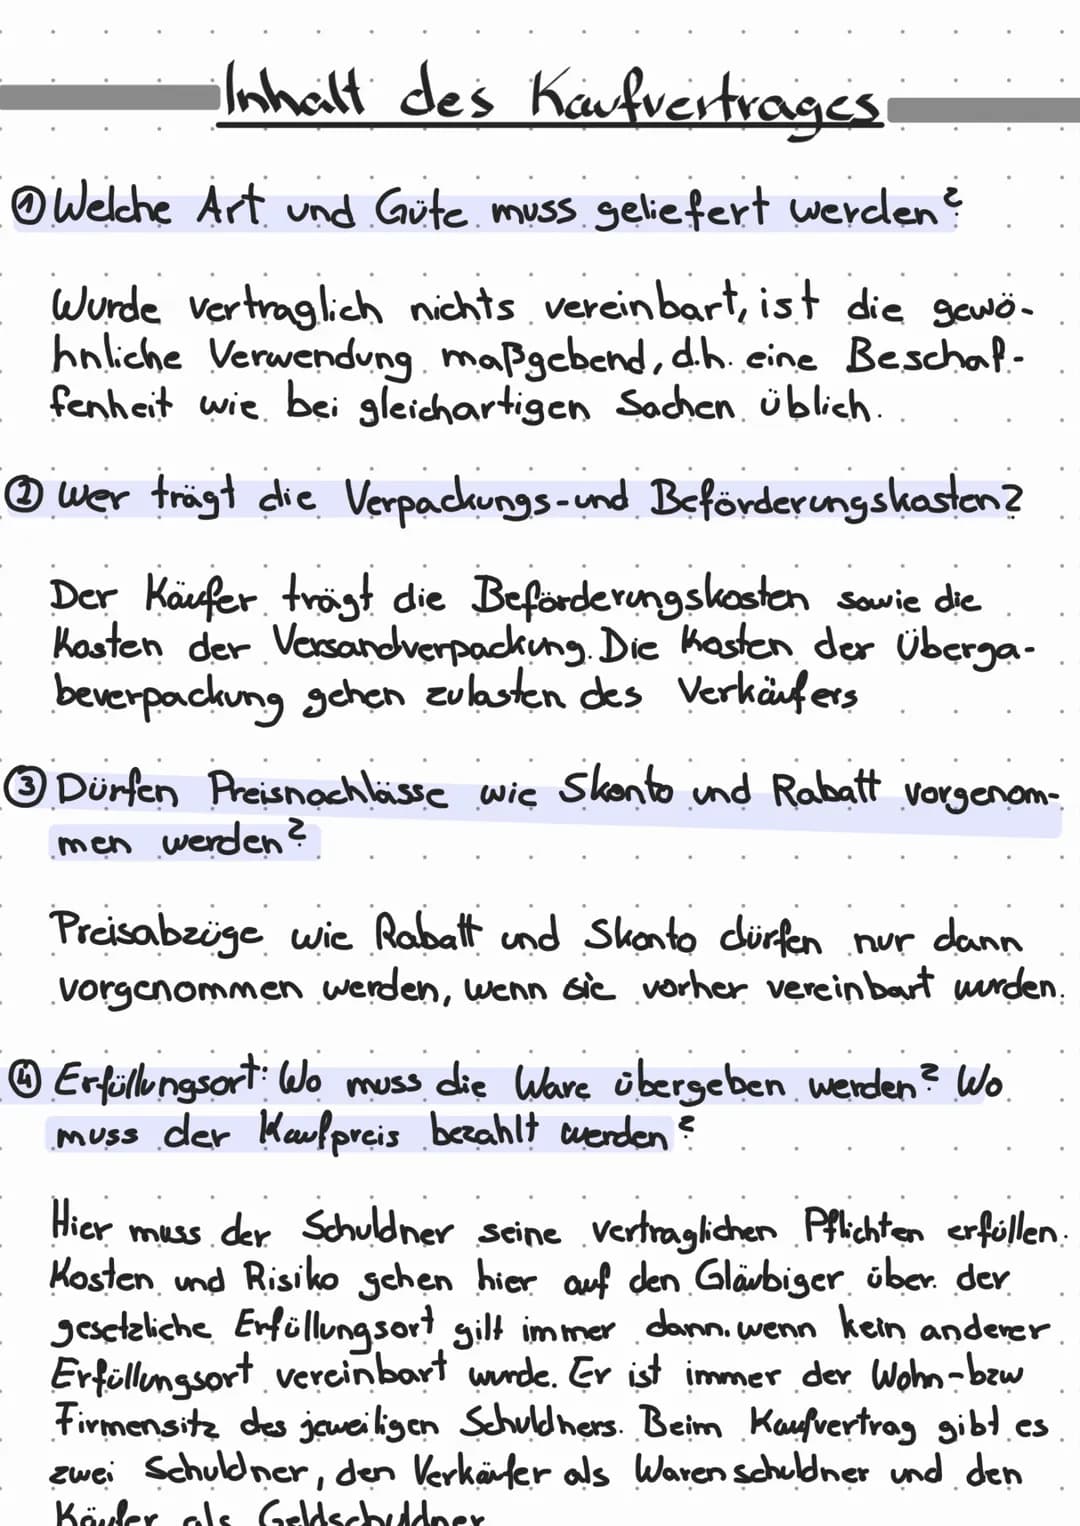 Inhalt des Kaufvertrages
① Welche Art und Güte muss geliefert werden?
Wurde vertraglich nichts vereinbart, ist die gewö-
hnliche Verwendung maßgebend, d.h. eine Beschaf-
fenheit wie bei gleichartigen Sachen üblich.
② Wer trägt die Verpackungs-und Beförderungskosten?
Der Käufer trägt die Beförderungskosten sowie die
Kosten der Versandverpackung. Die Kosten der Überga-
beverpackung gehen zulasten des Verkäufers
③ Dürfen Preisnachlässe wie Skonto und Rabatt vorgenom-
men werden?
Preisabzüge wie Rabatt und Skonto dürfen nur dann
vorgenommen werden, wenn sie vorher vereinbart wurden.
④ Erfüllungsort: Wo muss die Ware übergeben werden? Wo
muss der Kaufpreis bezahlt werden?
Hier muss der Schuldner seine vertraglichen Pflichten erfüllen.
Kosten und Risiko gehen hier auf den Gläubiger über. der
gesetzliche Erfüllungsort gilt immer dann. wenn kein anderer
Erfüllungsort vereinbart wurde. Er ist immer der Wohn-bzw
Firmensitz des jeweiligen Schuldners. Beim Kaufvertrag gibt es
zwei Schuldner, den Verkäufer als Warenschuldner und den
Käufer als Geldschuldner